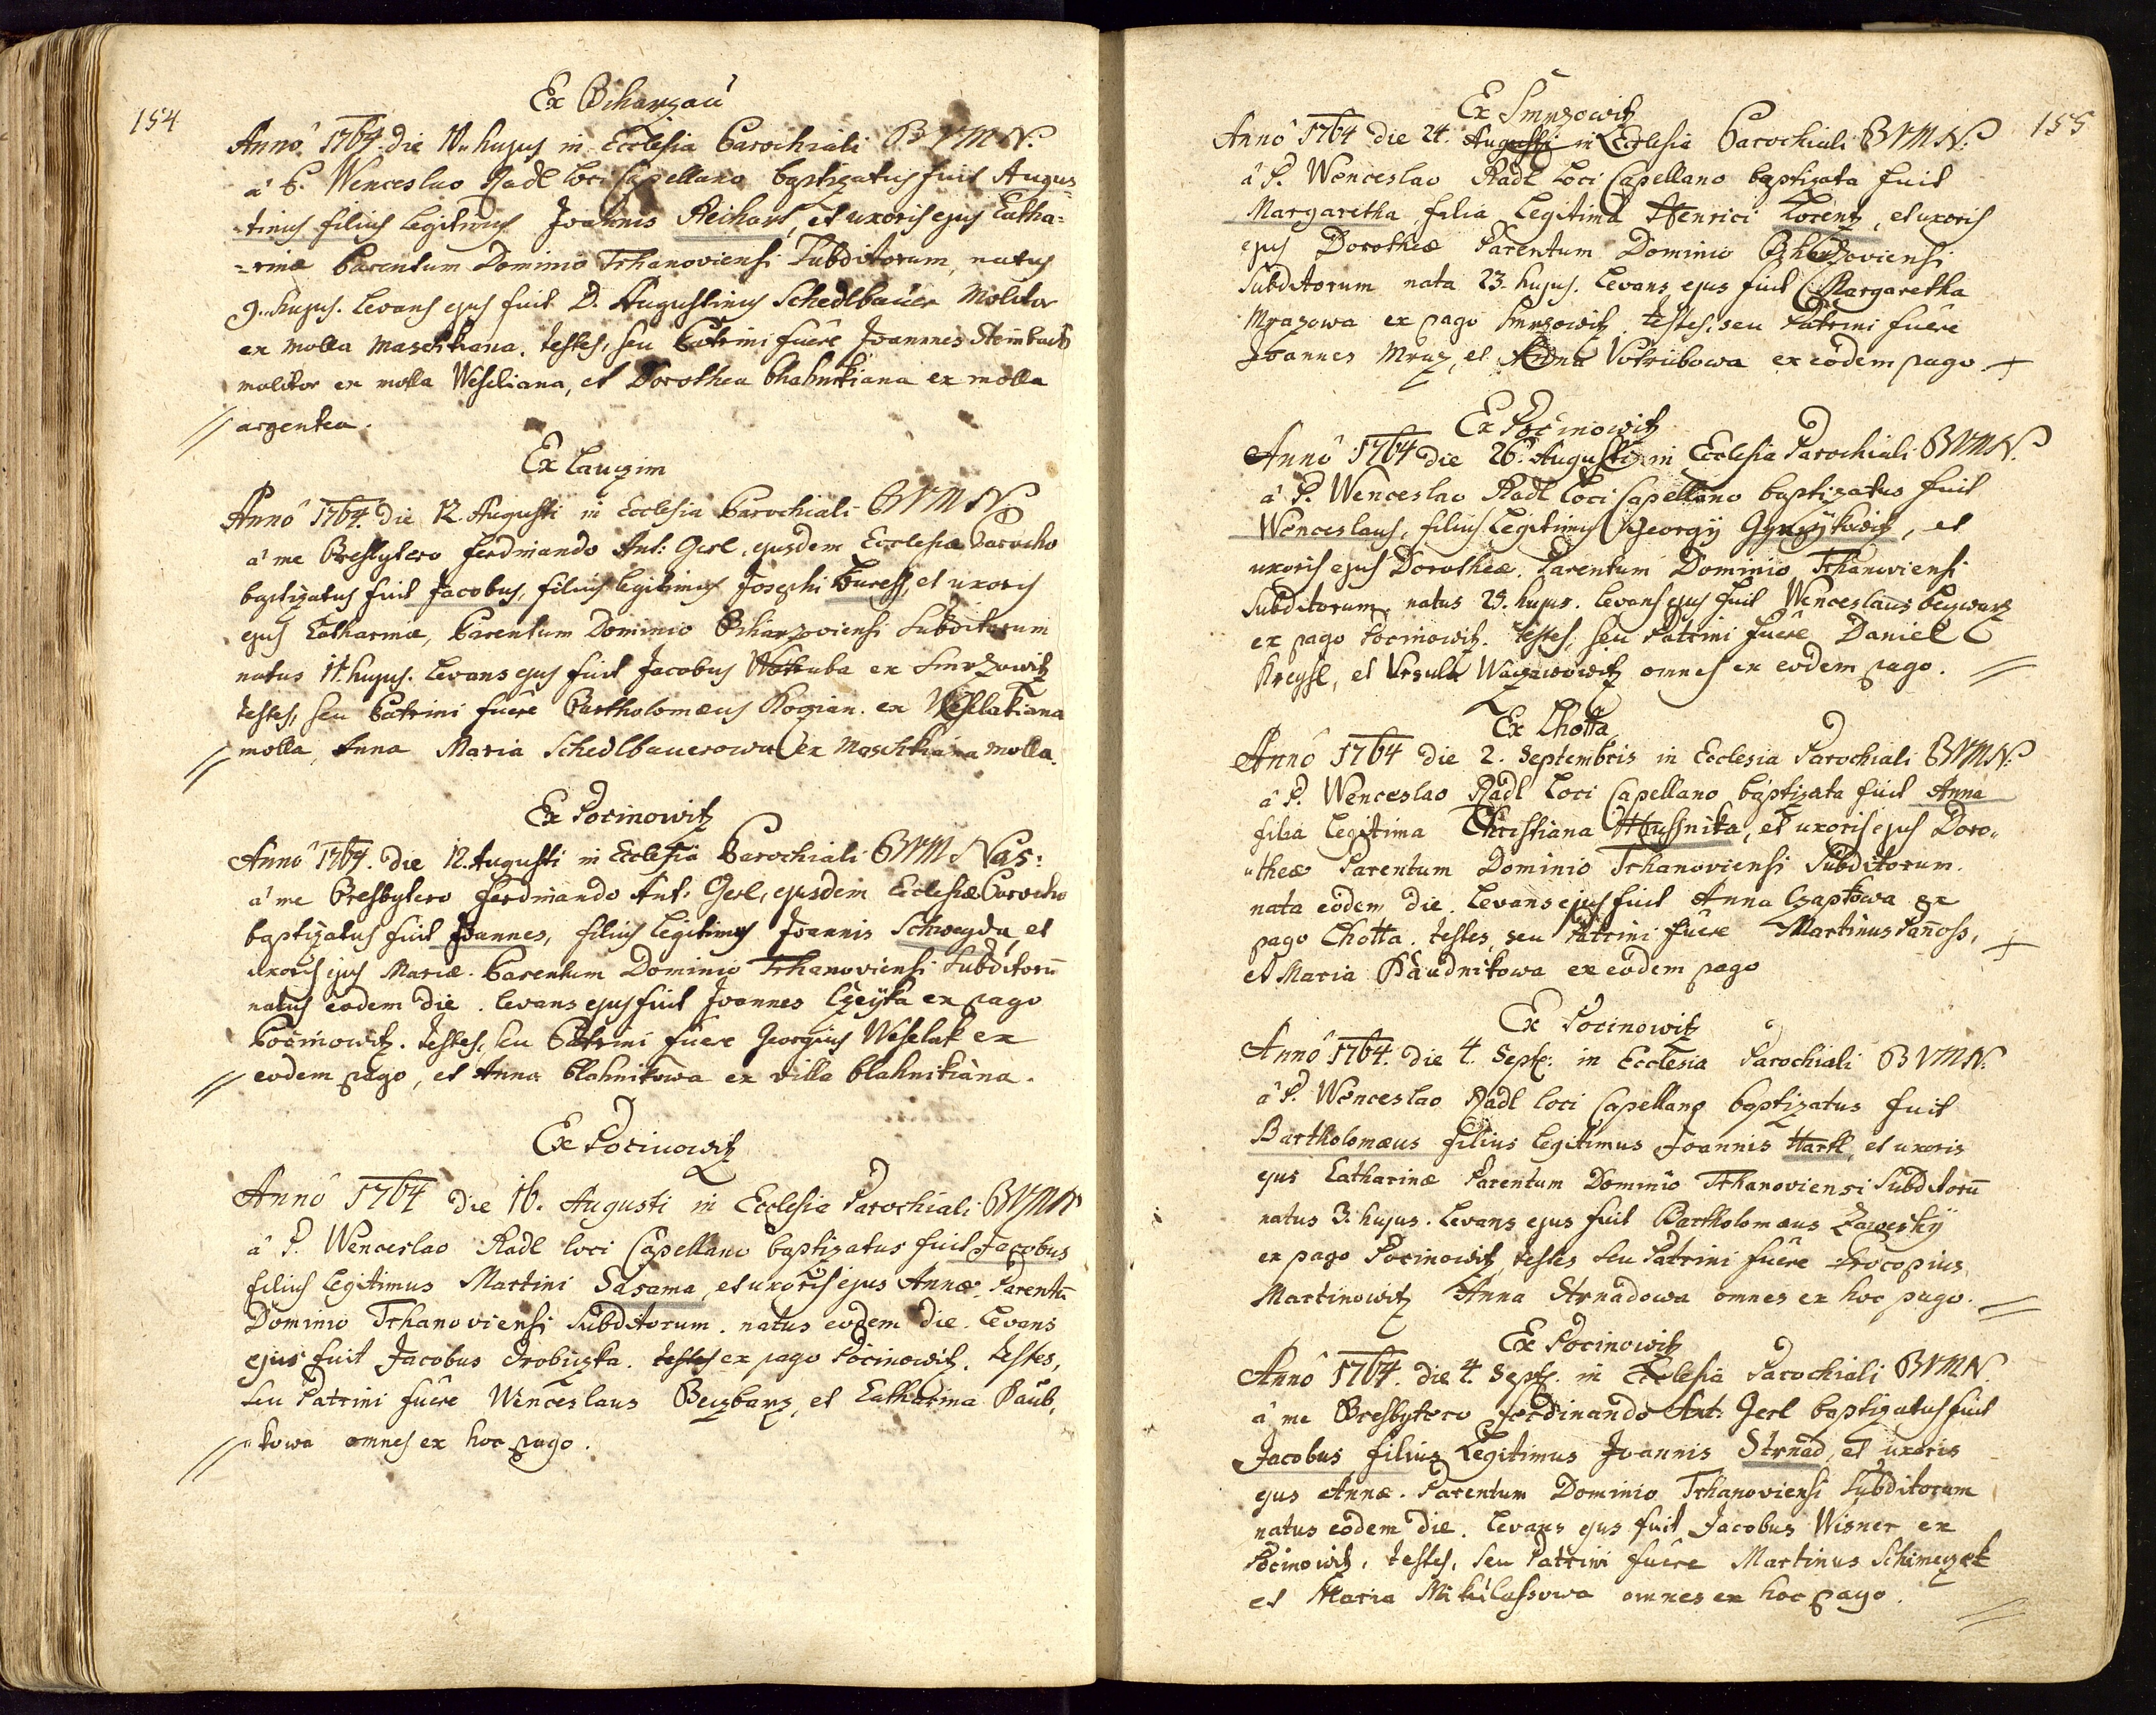 154
Ex Bcharzau
Anno 1764 die 10 hujus in Ecclesia Parochiali B V M N.
a P. Wenceslao Radl loci Capellano baptizatus fuit Augus=
=tinus filius legitimus Joannis Reichart, et uxoris ejus Catha=
=rinæ Parentum Dominio Trhanoviensi Subditorum, natus
9. hujus. Levans ejus fuit D. Augustinus Schedlbauer Molitor
ex molla Maschkiana. testes, seu Patrini fuêre Joannes Steinbach
molitor ex molla Weseliana, et Dorothea ex molla
argentea.
Ex Lauczim
Anno 1764 die 12. Augusti in Ecclesia Parochiali B V M N.
a me Presbytero Ferdinando Ant: Gerl, ejusdem Ecclesiæ Parocho
baptizatus fuit Jacobus, filius legitimus Josephi Buresh, et uxoris
ejus Catharinæ, Parentum Dominio Bcharzoviensi Subditorum
natus 11. hujus. Levans ejus fuit Jacobus Wotruba ex Smrzowitz
testes, seu Patrini fuêre Bartholomæus Kogian ex Weselakiana
molla, Anna Maria Schedlbauerowa ex Maschkiana molla.
Ex Pocinowitz
Anno 1764. die 12. Augusti in Ecclesia Parochiali B V M Nas:
a me Presbytero Ferdinando Ant: Gerl, ejusdem Ecclesiæ Parocho
baptizatus fuit Joannes, filius legitimus Joannis Schweyda, et
uxoris ejus Mariæ. Parentum Dominio Trhanoviensi Subditorū
natus eodem die. Levans ejus fuit Joannes Czeyka ex pago
Pocinowitz. testes, seu Patrini fuere Georgius Weselak ex
eodem pago, et Anna blahnikowa ex villa blahnikiana.
Ex Pocinowitz
Anno 1764 die 16. Augusti in Ecclesia Parochiali BVMN
a P. Wenceslao Radl loci Capellano baptizatus fuit Jacobus
filius legitimus Martini Sasama, et uxoris ejus Annæ. Parentū
Dominio Trhanoviensi Subditorum. natus eodem die. Levans
ejus fuit Jacobus Drobuzka. testes ex pago Pocinowitz. testes,
seu Patrini fuêre Wenceslaus Beyzbarz, et Catharina Paub,
"kowa omnes ex hoc pago.
155
Ex Smrzowitz
Anno 1764 die 24. Augusti in Ecclesia Parochiali BVMN.
a P. Wenceslao Radl Loci Capellano baptizata fuit
Margaretha filia Legitima Henrici Lorentz, et uxoris
ejus Dorotheæ Parentum Dominio Bcharzoviensi
Subditorum nata 23. hujus. Levans ejus fuit Margaretha
Mrazowa ex pago Smrzowitz. testes, seu Patrini fuêre
Joannes Mraz, et Anna Votrubowa ex eodem pago
Ex Pocinowitz
Anno 1764 die 26. Augusti in Ecclesia Parochiali BVMN.
a P. Wenceslao Radl Loci Capellano baptizatus fuit
Wenceslaus, filius legitimus Georgij, et
uxoris ejus Dorotheæ. Parentum Dominio Trhanoviensi
Subditorum. natus 25. hujus. Levans ejus fuit Wenceslaus Beyzwarz
ex pago Pocinowitz. testes, seu Patrini fuêre Daniel
Kreysl, et Ursula omnes ex eodem pago.
Ex Lhotta
Anno 1764 die 2. Septembris in Ecclesia Parochiali BVMN.
a P. Wenceslao Radl Loci Capellano baptizata fuit Anna
filia Legitima Christiana Hussnika, et uxoris ejus Doro"
"theæ Parentum Dominio Trhanoviensi Subditorum.
nata eodem die. Levans ejus fuit Anna Czapkowa ex
pago Lhotta. testes, seu Patrini fuêre Martinus Panoss,
et Maria Paudnikowa ex eodem pago
Ex Pocinowitz
Anno 1764. die 4. Sept: in Ecclesia Parochiali BVMN.
a P. Wenceslao Radl loci Capellano baptizatus fuit
Bartholomæus filius legitimus Joannis Hartl, et uxoris
ejus Catharinæ Parentum Dominio Trhanoviensi Subditorū
natus 3. hujus. Levans ejus fuit Bartholomæus Zaweskÿ
ex pago Pocinowitz, testes seu Patrini fuêre Procopius
Martinowitz Anna Strnadowa omnes ex hoc pago.
Ex Pocinowitz
Anno 1764. die 4 Sept: in Ecclesia Parochiali BVMN.
a me Presbytero Ferdinando Ant: Gerl baptizatus fuit
Jacobus filius Legitimus Joannis Strnad, et uxoris
ejus Annæ. Parentum Dominio Trhanoviensi Subditorum
natus eodem die. Levans ejus fuit Jacobus Wisner ex
Pocinowitz. testes, seu Patrini fuêre Martinus Schimeczek
et Maria Mikulassowa omnes ex hoc pago.